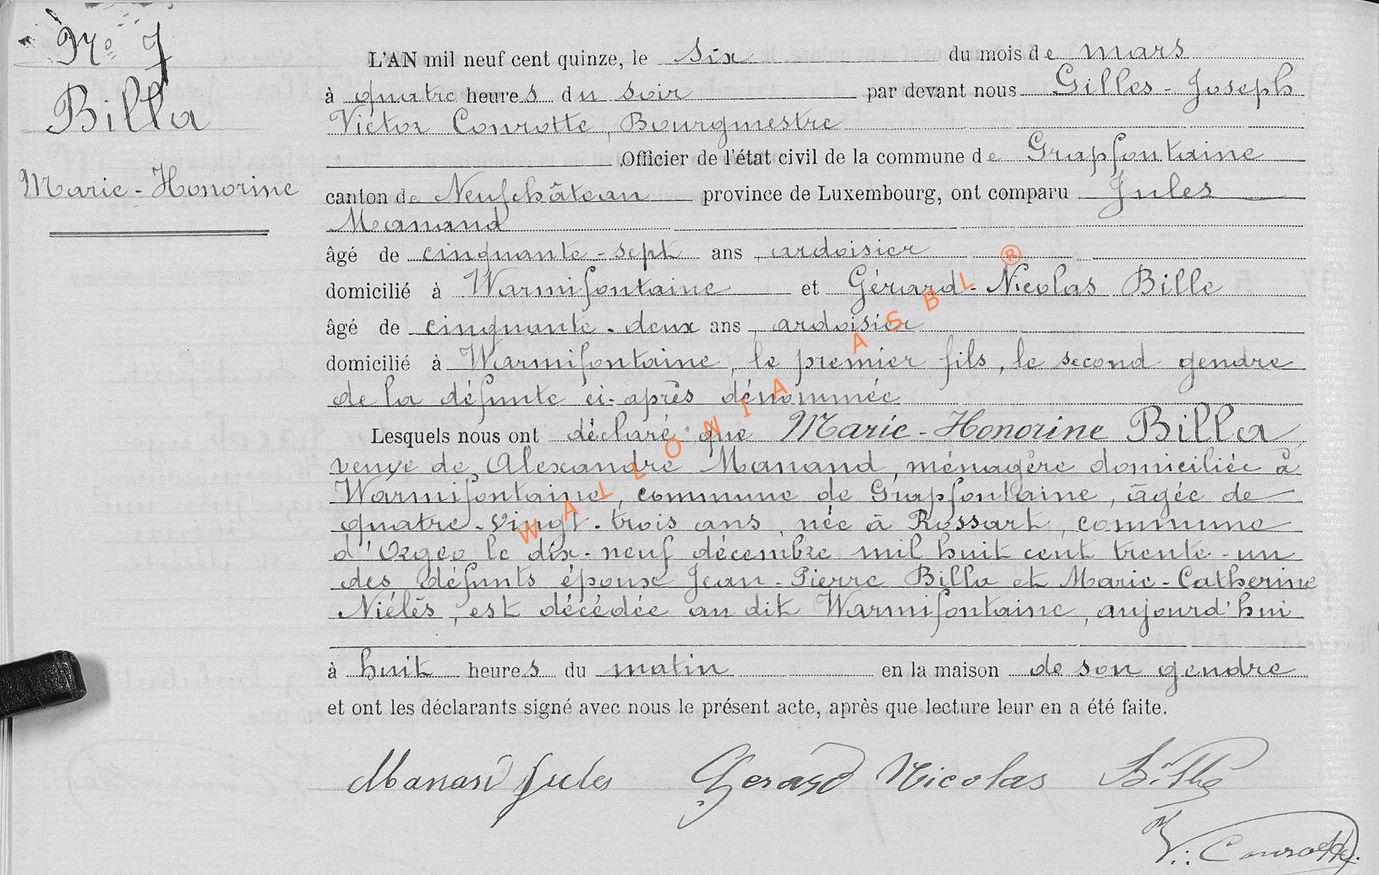 No 7
Billa
Marie-Honorine
L'AN mil neuf cent quinze, le six du mois de mars
à quatre heures du soir par devant nous Gilles-Joseph
Victor Conrotte, Bourgmestre
Officier de l'état civil de la commune de Grapfontaine
canton de Neufchâteau province de Luxembourg, ont comparu Jules
Manand
âgé de cinquante-sept ans ardoisier
domicilié à Warmifontaine et Gérard-Nicolas Bille
âgé de cinquante-deux ans ardoisier
domicilié à Warmifontaine, le premier fils, le second gendre
de la défunte ci-après dénommée
Lesquels nous ont déclaré que Marie-Honorine Billa,
veuve de Alexandre Manand, ménagère domiciliée à
Warmifontaine, commune de Grapfontaine, âgée de
quatre-vingt-trois ans née à Rossart, commune
d'Orgeo le dix-neuf décembre mil huit cent trente-un
des défunts époux Jean-Pierre Billa et Marie-Catherine
Niélès, est décédée au dit Warmifontaine, aujourd'hui
à huit heures du matin en la maison de son gendre
et ont les déclarants signé avec nous le présent acte, après que lecture leur en a été faite.
Manand Jules Gerard Nicolas Bille
V. Conrotte
WALLONIA ASBL ®